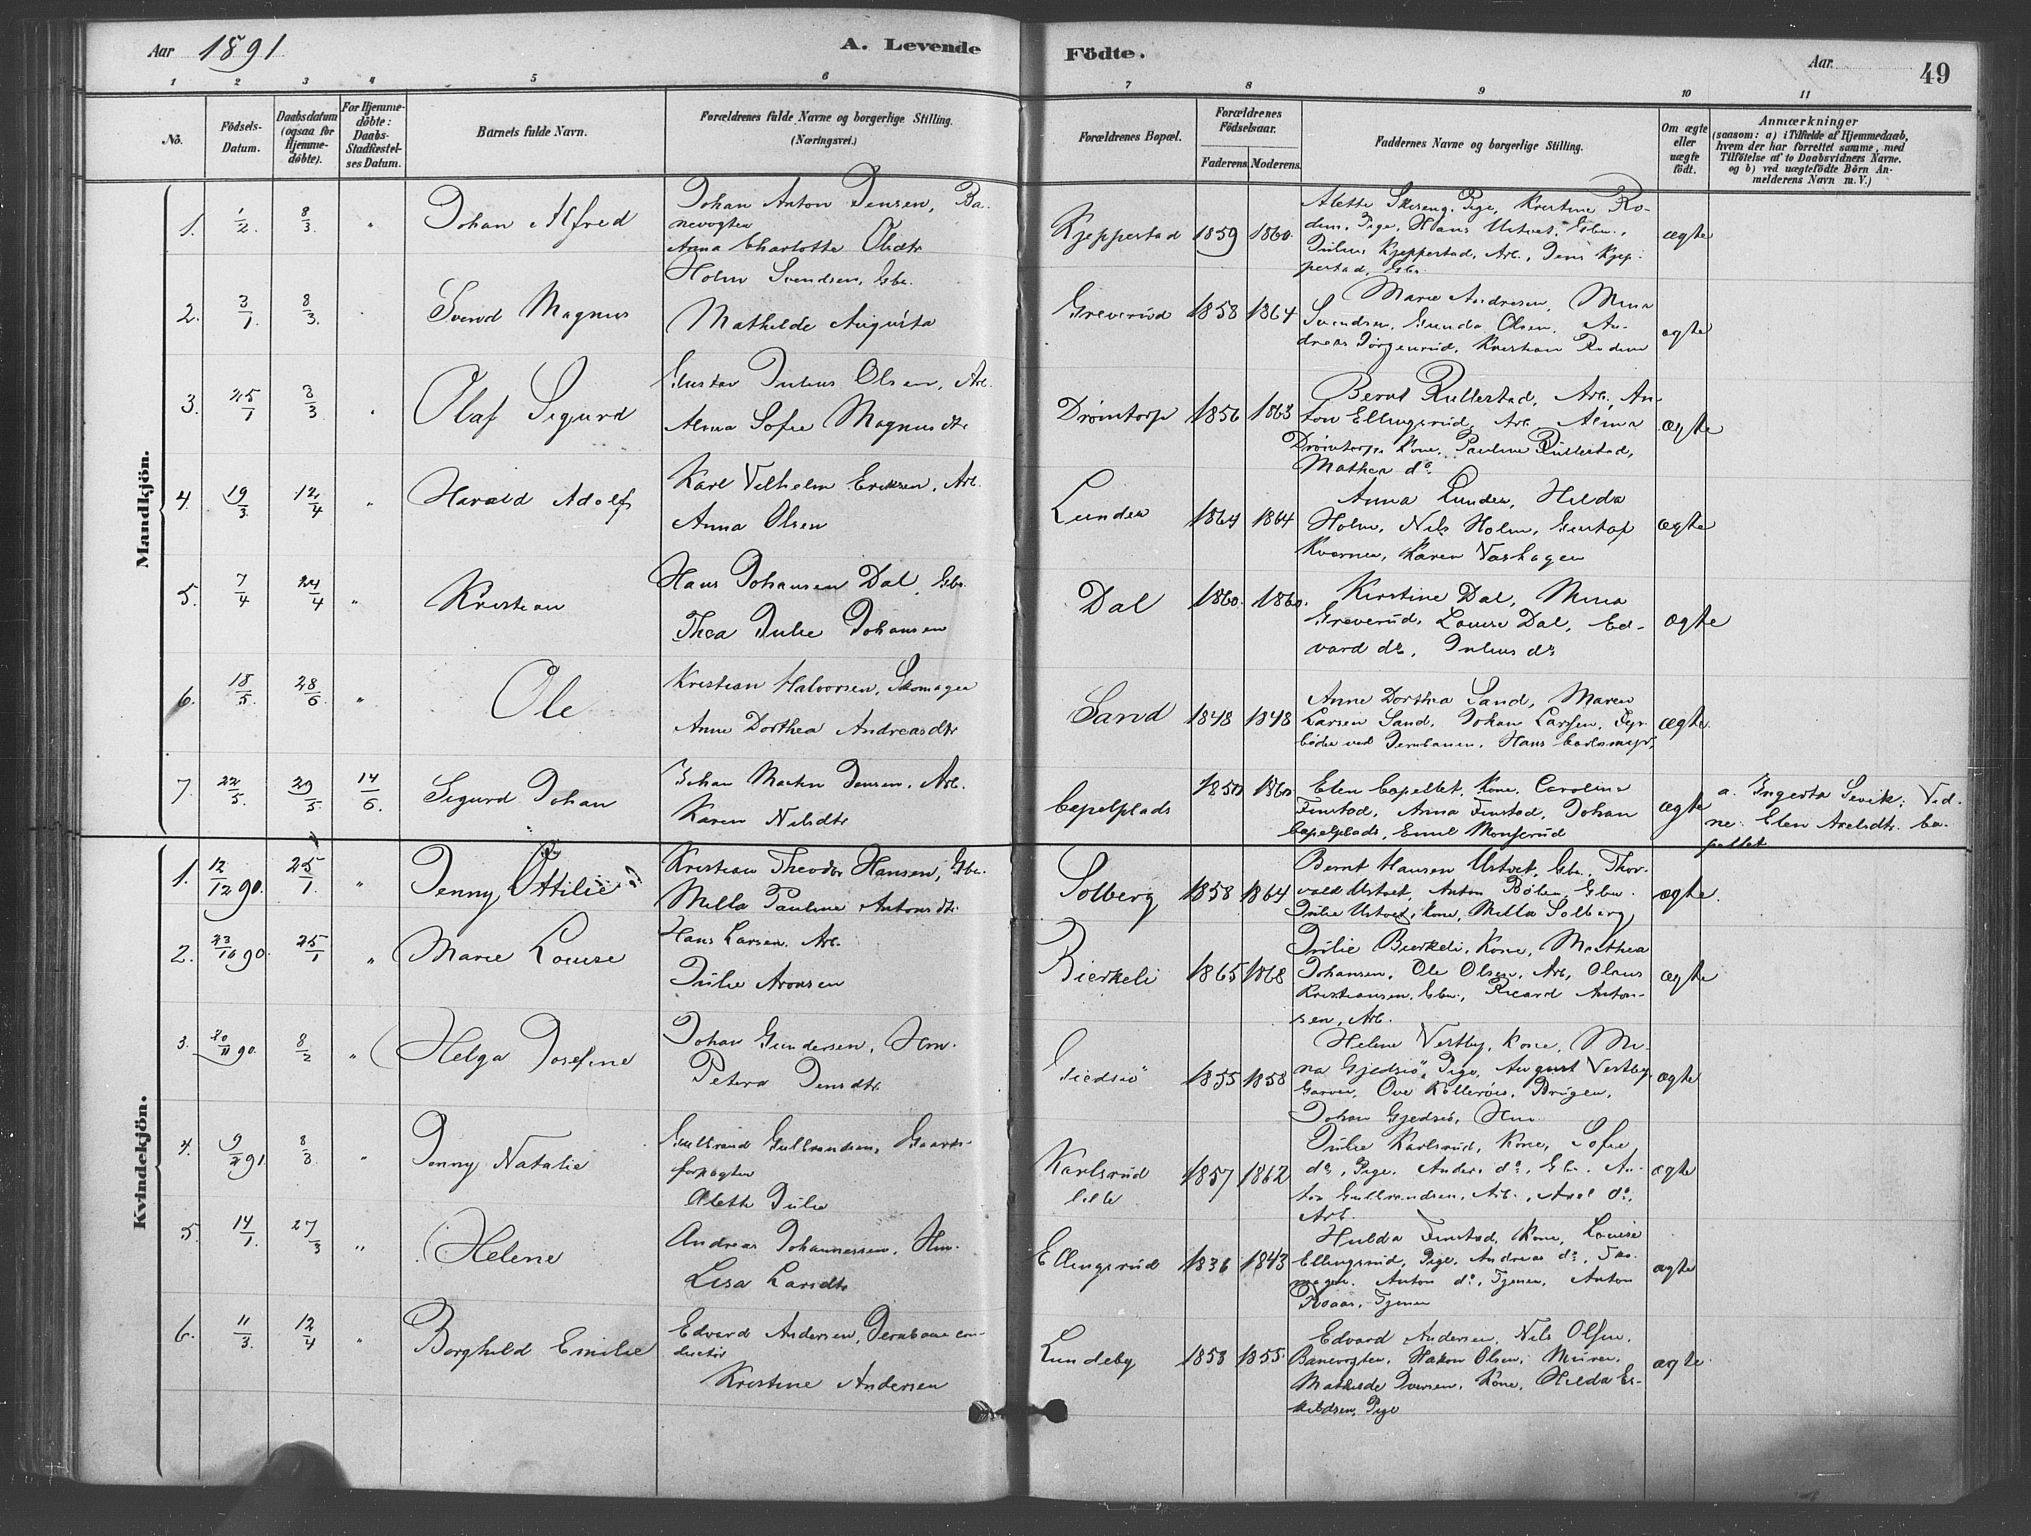 Aar 1891
A. Levende
Födte.
Aar
49
1 2 3 4 5 6 7 8 9 10 11
No.
Födsels-Datum.
Daabsdatum (ogsaa for Hjemme-döbte).
For Hjemme-döbte: Daabs-Stadfæstel-ses Datum.
Barnets fulde Navn.
Forældrenes fulde Navne og borgerlige Stilling.
(Næringsvei.)
Forældrenes Bopæl.
Forældrenes Födselsaar.
Faderens. Moderens.
Faddernes Navne og borgerlige Stilling.
Om ægte eller uægte födt.
Anmærkninger
(saasom: a) i Tilfælde af Hjemmedaab,
hvem der har forrettet samme, med
Tilföielse af to Daabsvidners Navne.
og b) ved uægtefödte Börn An-
melderens Navn m. V.)
Mandkjön.
1. 1/2 8/3 " Johan Alfred
Johan Anton Jensen, Ba-
nevogter
Anna Charlotte Olsdtr
Kjeppestad 1859 1860
Alette Skeseng, Pige, Kristine Ro-
dem, Pige, Hans Ustvet, Gbr.,
Julius Kjeppestad, Arb., Jens Kjep-
pestad, Gbr.
ægte
2. 3/1 8/3 " Svend Magnus
Holm Svendsen, Gbr.
Mathilde Augusta
Greverud 1858 1864
Marie Andresen, Mina
Svendsen, Gunda Olsen, An-
dreas Jørgenrud, Kristian Rodem
ægte
3. 25/1 8/3 " Olaf Sigurd
Gustav Julius Olsen, Arb.
Alma Sofie Magnusdtr
Drömtorp 1856 1863
Bernt Rullestad, Arb., An-
ton Ellingsrud, Arb., Alma
Drömtorp, Kone, Pauline Rullestad,
Mathea do.
ægte
4. 19/3 12/4 " Harald Adolf
Karl Vilhelm Eriksen, Arb.
Anna Olsen
Lunden 1864 1864
Anna Lunden, Hilda
Holm, Nils Holm, Gustaf
Kvernen, Karen Vashagen
ægte
5. 7/4 24/4 " Kristian
Hans Johansen Dal, Gbr.
Thea Julie Johansen
Dal 1860 1860
Kirstine Dal, Mina
Greverud, Louise Dal, Ed-
vard do, Julius do
ægte
6. 18/5 28/6 " Ole
Kristian Halvorsen, Skomager
Anne Dorthea Andreasdtr
Sand 1848 1848
Anne Dorthea Sand, Maren
Larsen Sand, Johan Larsen, Fyr-
böder ved Jernbanen, Hans Carlsmyr,
ægte
7. 22/5 29/5 14/6 Sigurd Johan
Johan Martin Jensen, Arb.
Karen Nilsdtr
Capelplads 1850 1860
Elen Capellet, Kone, Carolina
Finstad, Anna Finstad, Johan
Capelplads, Emil Monserud
ægte
a. Ingerta Sevik; Vid-
ne: Elen Axelsdtr. Ca-
pellet
Kvindekjön.
1. 12/12 90. 25/1 " Jenny Ottilie
Kristian Theodor Hansen, Gbr.
Milla Pauline Antonsdtr
Solberg 1858 1864
Bernt Hansen Ustvet, Gbr., Thor-
vald Ustvet, Anton Bölen, Gbr.
Julie Ustvet, Kone, Milla Solberg
ægte
2. 23/10 90. 25/1 " Marie Louise
Hans Larsen, Arb.
Julie Aronsen
Bierkeli 1865 1868
Julie Bierkeli, Kone, Mathea
Johansen, Ole Olsen, Arb, Olaus
Kristiansen, Gbr., Ricard Anton-
sen, Arb.
ægte
3. 20/11 90. 8/2 " Helga Josefine
Johan Gundersen, Hm.
Petera Jensdtr.
Giedsiö 1855 1858
Helene Vestby, Kone, Mi-
na Gjedsiö, Pige, August Vestby,
Garver, Ove Kolleröes, Brugen,
Johan Gjedsiö, Hm
ægte
4. 9/1 91. 8/3 " Jenny Natalie
Gulbrand Gulbrandsen, Gaards-
forpagter
Alette Julie
Karlsrud
lille 1857 1862
Julie Karlsrud, Kone, Sofie
do, Pige, Anders do, Gbr. An-
ton Gulbrandsen, Arb., Axel do,
Arb.
ægte
5. 14/1 27/3 " Helene
Andreas Johannessen, Hm.
Lisa Larsdtr
Ellingsrud 1836 1843
Hulda Finstad, Kone, Louise
Ellingsrud, Pige, Andreas do, Sko-
mager, Anton do, Tjener, Anton
Roaas, Tjener
ægte
6. 11/3 12/4 " Borghild Emilie
Edvard Andersen, Jernbanecon-
ductör
Kristine Andersen
Lundeby 1858 1855
Edvard Andersen, Nils Olsen,
Banevogter, Hakon Olsen, Murer,
Mathilde Iversen, Kone, Hilda Es-
kildsen, Pige
ægte